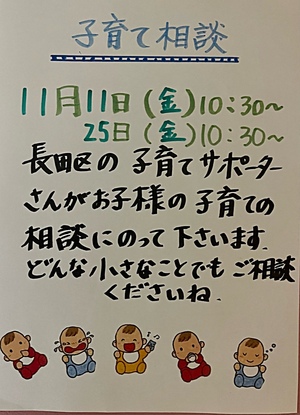 子育て相談
11月11日(金)10:30～
25日(金)10:30～
長田区の子育てサポーター
さんがお子様の子育ての
相談にのって下さいます.
どんな小さなことでもご相談
くださいね.